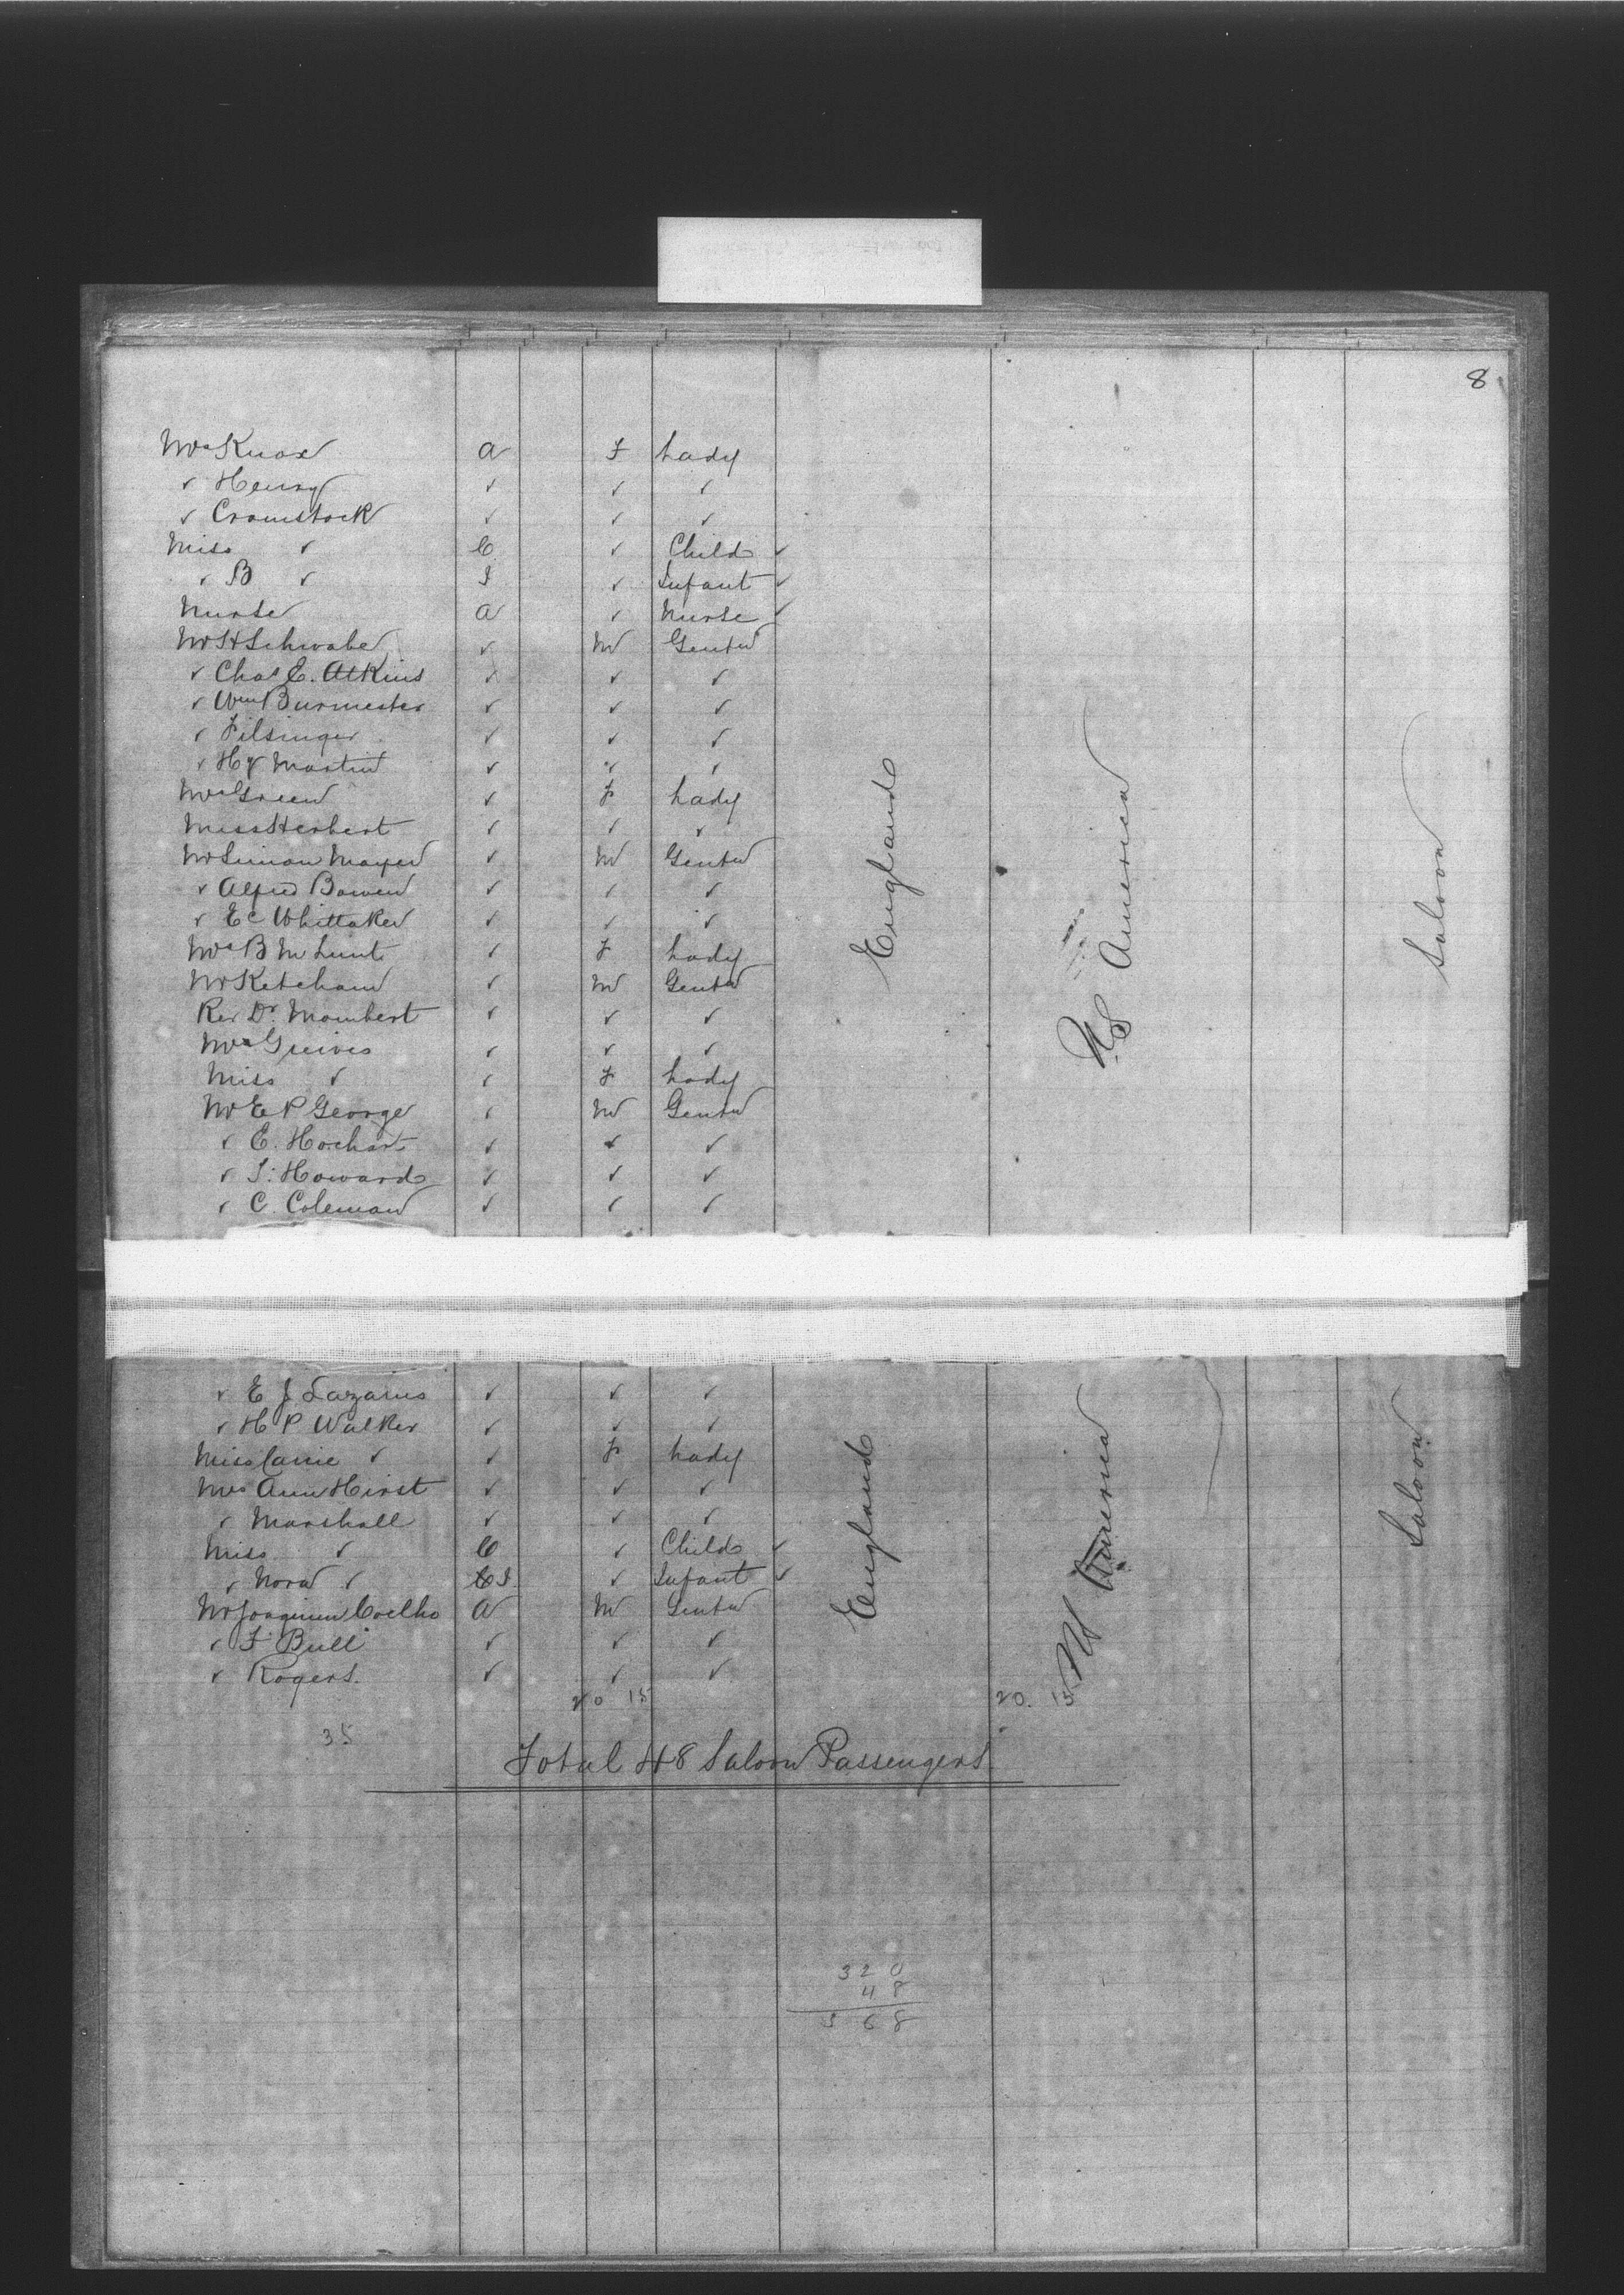 8
Mrs Knox a F Lady
✓ Henry ✓ ✓ ✓
✓ Cromstock ✓ ✓ ✓
Miss ✓ C ✓ Child ✓
✓ B ✓ I ✓ Infant ✓
Nurse a ✓ Nurse ✓
Mr H Schwabe ✓ M Gentn
✓ Chas E. Atkins ✓ ✓ ✓
✓ Wm Burmester ✓ ✓ ✓
✓ Filsinger ✓ ✓ ✓
✓ Hy Martin ✓ ✓ ✓
Mrs Green ✓ F Lady
Miss Herbert ✓ ✓ ✓
Mr Simon Mayer ✓ M Gentn
✓ Alfred Bowen ✓ ✓ ✓
✓ E C Whittaker ✓ ✓ ✓
Mrs B M Lunt ✓ F Lady
Mr Ketcham ✓ M Gentn
Rev Dr Mombert ✓ ✓ ✓
Grieves ✓ ✓ ✓
Miss ✓ ✓ F Lady
Mr E P George ✓ M Gentn
✓ E. Hochart ✓ ✓ ✓
✓ S. Howard ✓ ✓ ✓
✓ C. Coleman ✓ ✓ ✓
England
US America
Saloon
✓ E J Lazarus ✓ ✓ ✓
✓ H P Walker ✓ ✓ ✓
Miss Carrie ✓ ✓ F Lady
Mrs Ann Hirst ✓ ✓ ✓
✓ Marshall ✓ ✓ ✓
Miss ✓ C ✓ Child ✓
✓ Nora ✓ I ✓ Infant ✓
Mr Joaquim Coelho a M Gentn
✓ F Bull ✓ ✓ ✓
✓ Rogers. ✓ ✓ ✓
England
US America
Saloon
20 15 20. 15
35
Total 48 Saloon Passengers
320
48
368